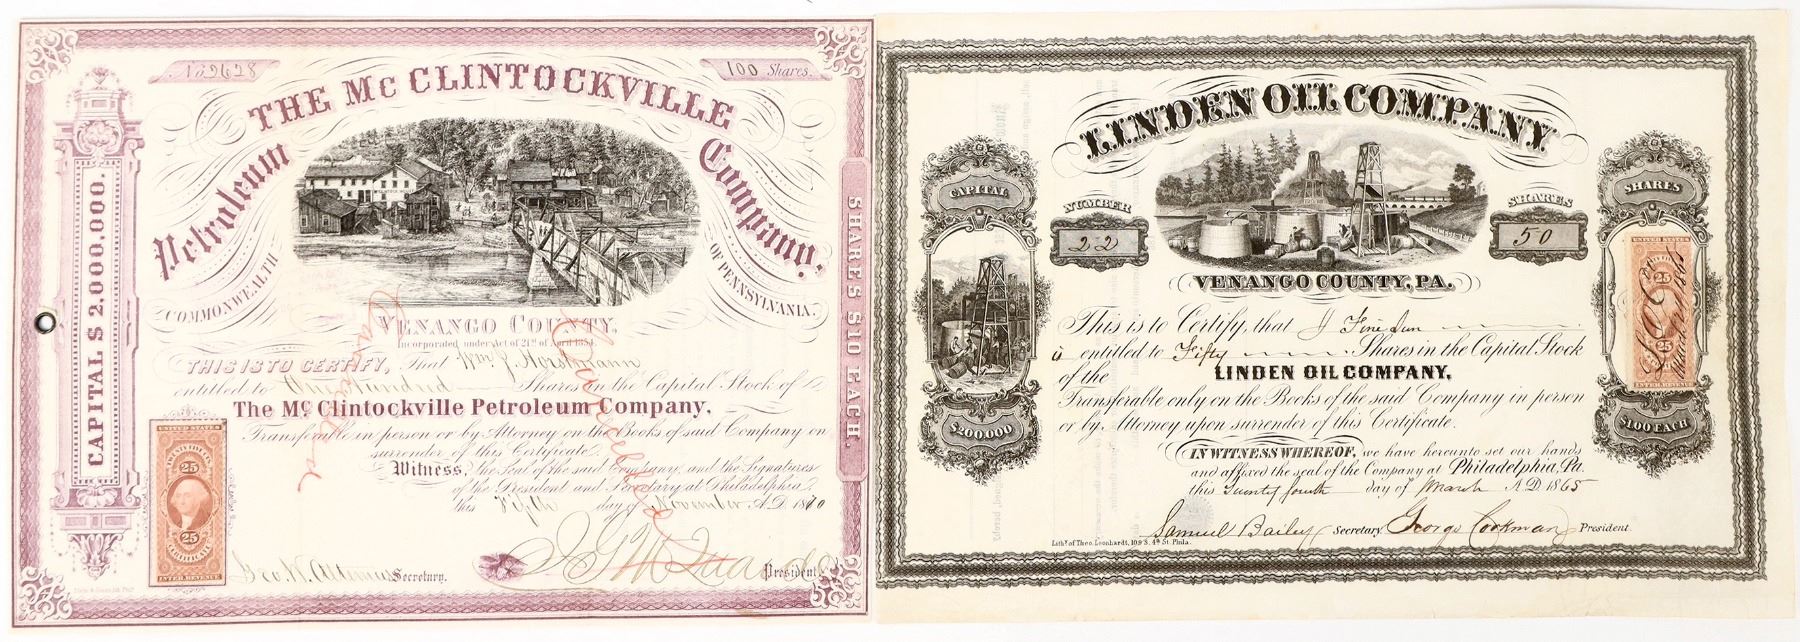 No 2628
100 Shares.
THE Mc CLINTOCKVILLE
Petroleum Company.
COMMONWEALTH OF PENNSYLVANIA.
CAPITAL $ 2,000,000.
SHARES $10 EACH.
VENANGO COUNTY,
Incorporated under Act of 21st of April 1854.
THIS IS TO CERTIFY, That Wm J. Horstmann
entitled to One Hundred Shares in the Capital Stock of
The Mc Clintockville Petroleum Company,
Transferable in person or by Attorney on the Books of said Company on
surrender of this Certificate.
Witness, the Seal of the said Company, and the Signatures
of the President and Secretary at Philadelphia
this Fifth day of November A.D. 1870
Secretary.
President
Cancelled
UNITED STATES
25 25
25
CERTIFICATE
INTER. REVENUE
LINDEN OIL COMPANY.
CAPITAL
$200,000
NUMBER
22
SHARES
50
SHARES
$100 EACH
VENANGO COUNTY, PA.
This is to Certify, that J Fine Sun
is entitled to Fifty Shares in the Capital Stock
of the LINDEN OIL COMPANY,
Transferable only on the Books of the said Company in person
or by Attorney upon surrender of this Certificate.
IN WITNESS WHEREOF, we have hereunto set our hands
and affixed the seal of the Company at Philadelphia, Pa.
this Twenty fourth day of March A.D. 1865
Samuel Bailey Secretary. George Cookman President.
Lithy. of Theo. Leonhardt, 109 S. 4th St. Phila.
UNITED STATES
25
25
INTER. REVENUE